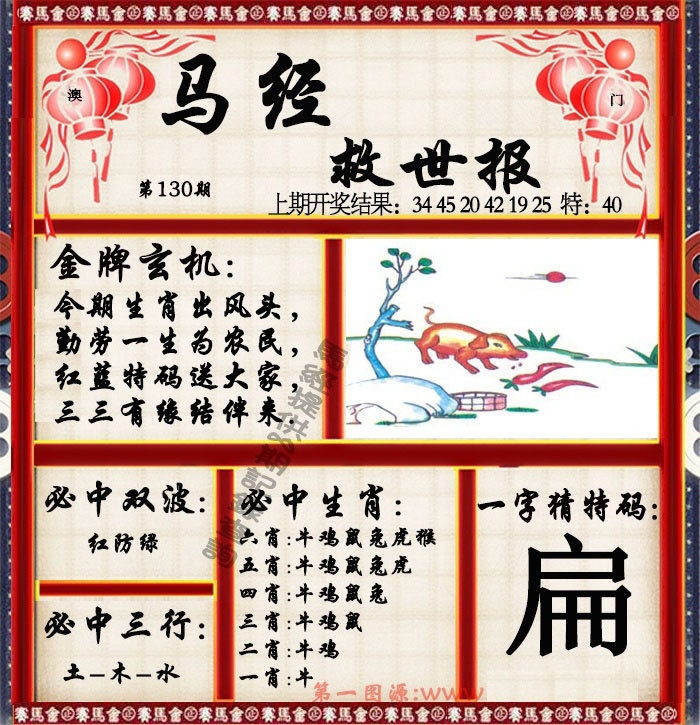 賽馬會正賽馬會正賽馬會正賽馬會正賽馬會正賽馬會
澳
门
马经
救世报
第130期
上期开奖结果：34 45 20 42 19 25 特：40
金牌玄机：
今期生肖出风头，
勤劳一生为农民，
红蓝特码送大家，
三三有缘结伴来.
必中双波：
红防绿
必中三行：
土–木–水
必中生肖：
六肖:牛鸡鼠兔虎猴
五肖:牛鸡鼠兔虎
四肖:牛鸡鼠兔
三肖:牛鸡鼠
二肖:牛鸡
一肖:牛
一字猜特码：
扁
第一图源:www